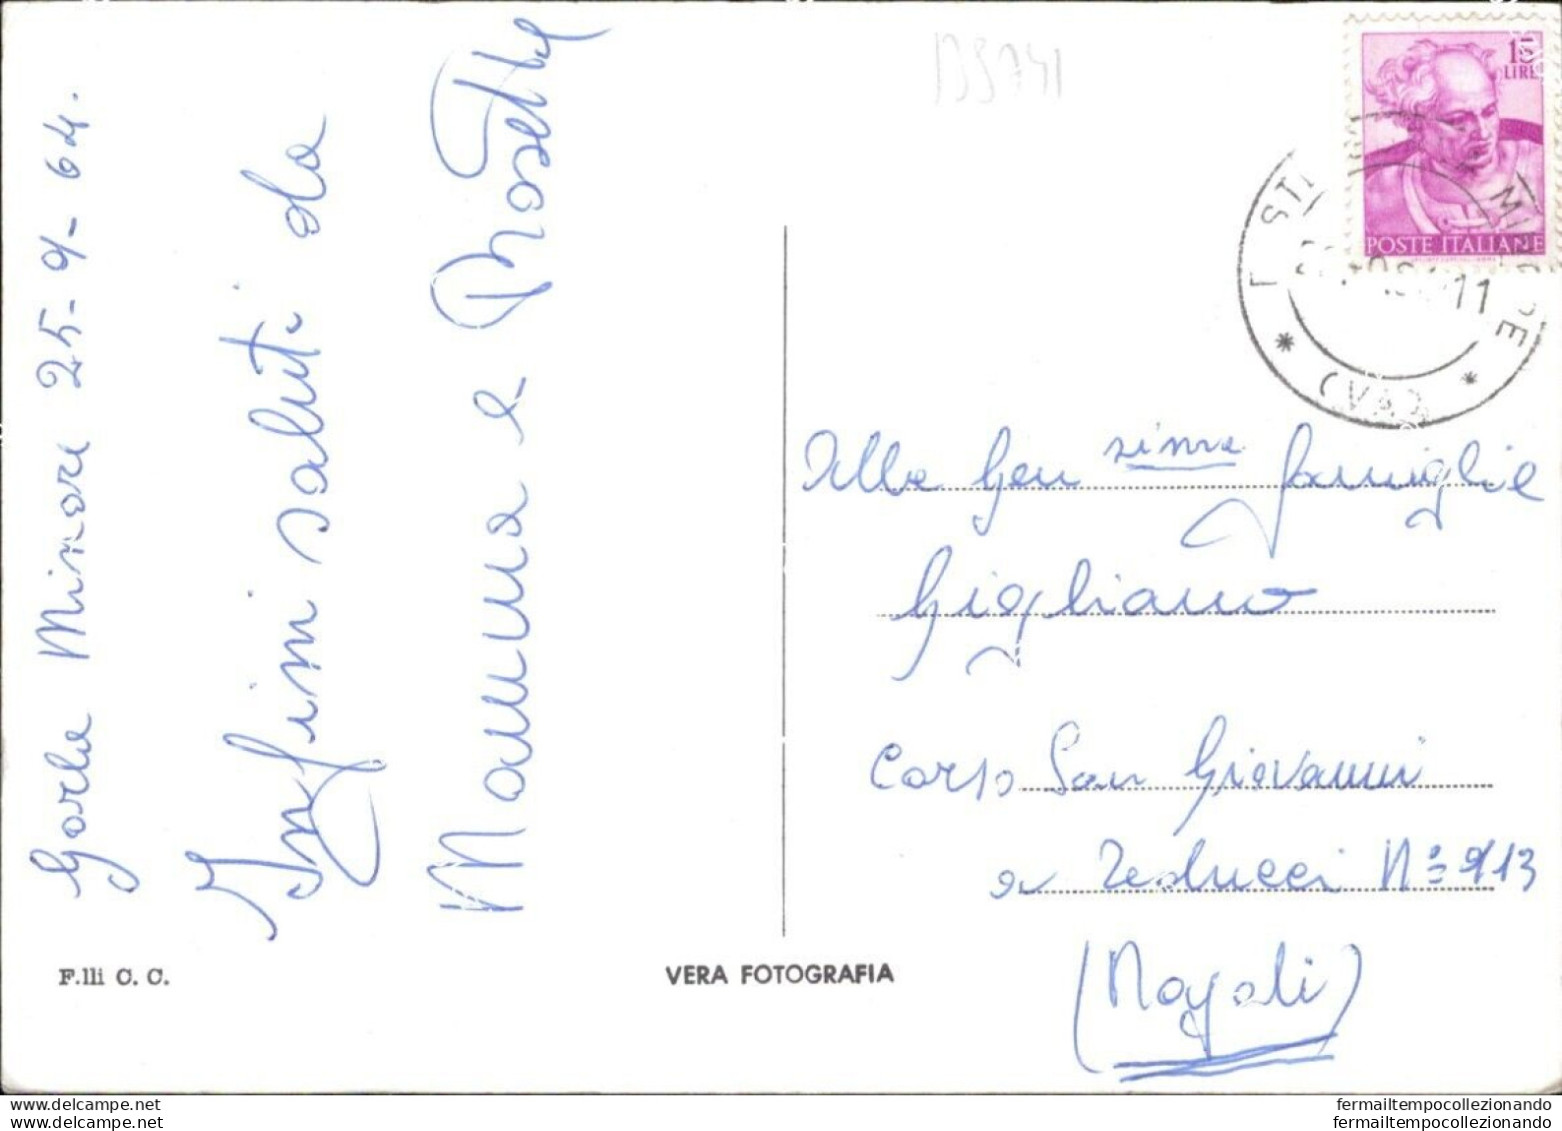 Gorla Minore 25-9-64.
Infini saluti da
Mamma e Rosetta
F.lli C. C.
VERA FOTOGRAFIA
15
LIRE
POSTE ITALIANE
* (VA) *
Alle Gen sime famiglie
Gigliano
Corso San Giovanni
a Teduccei N° 913
(Napoli)
www.delcampe.net
fermailtempocollezionando
fermailtempocollezionando